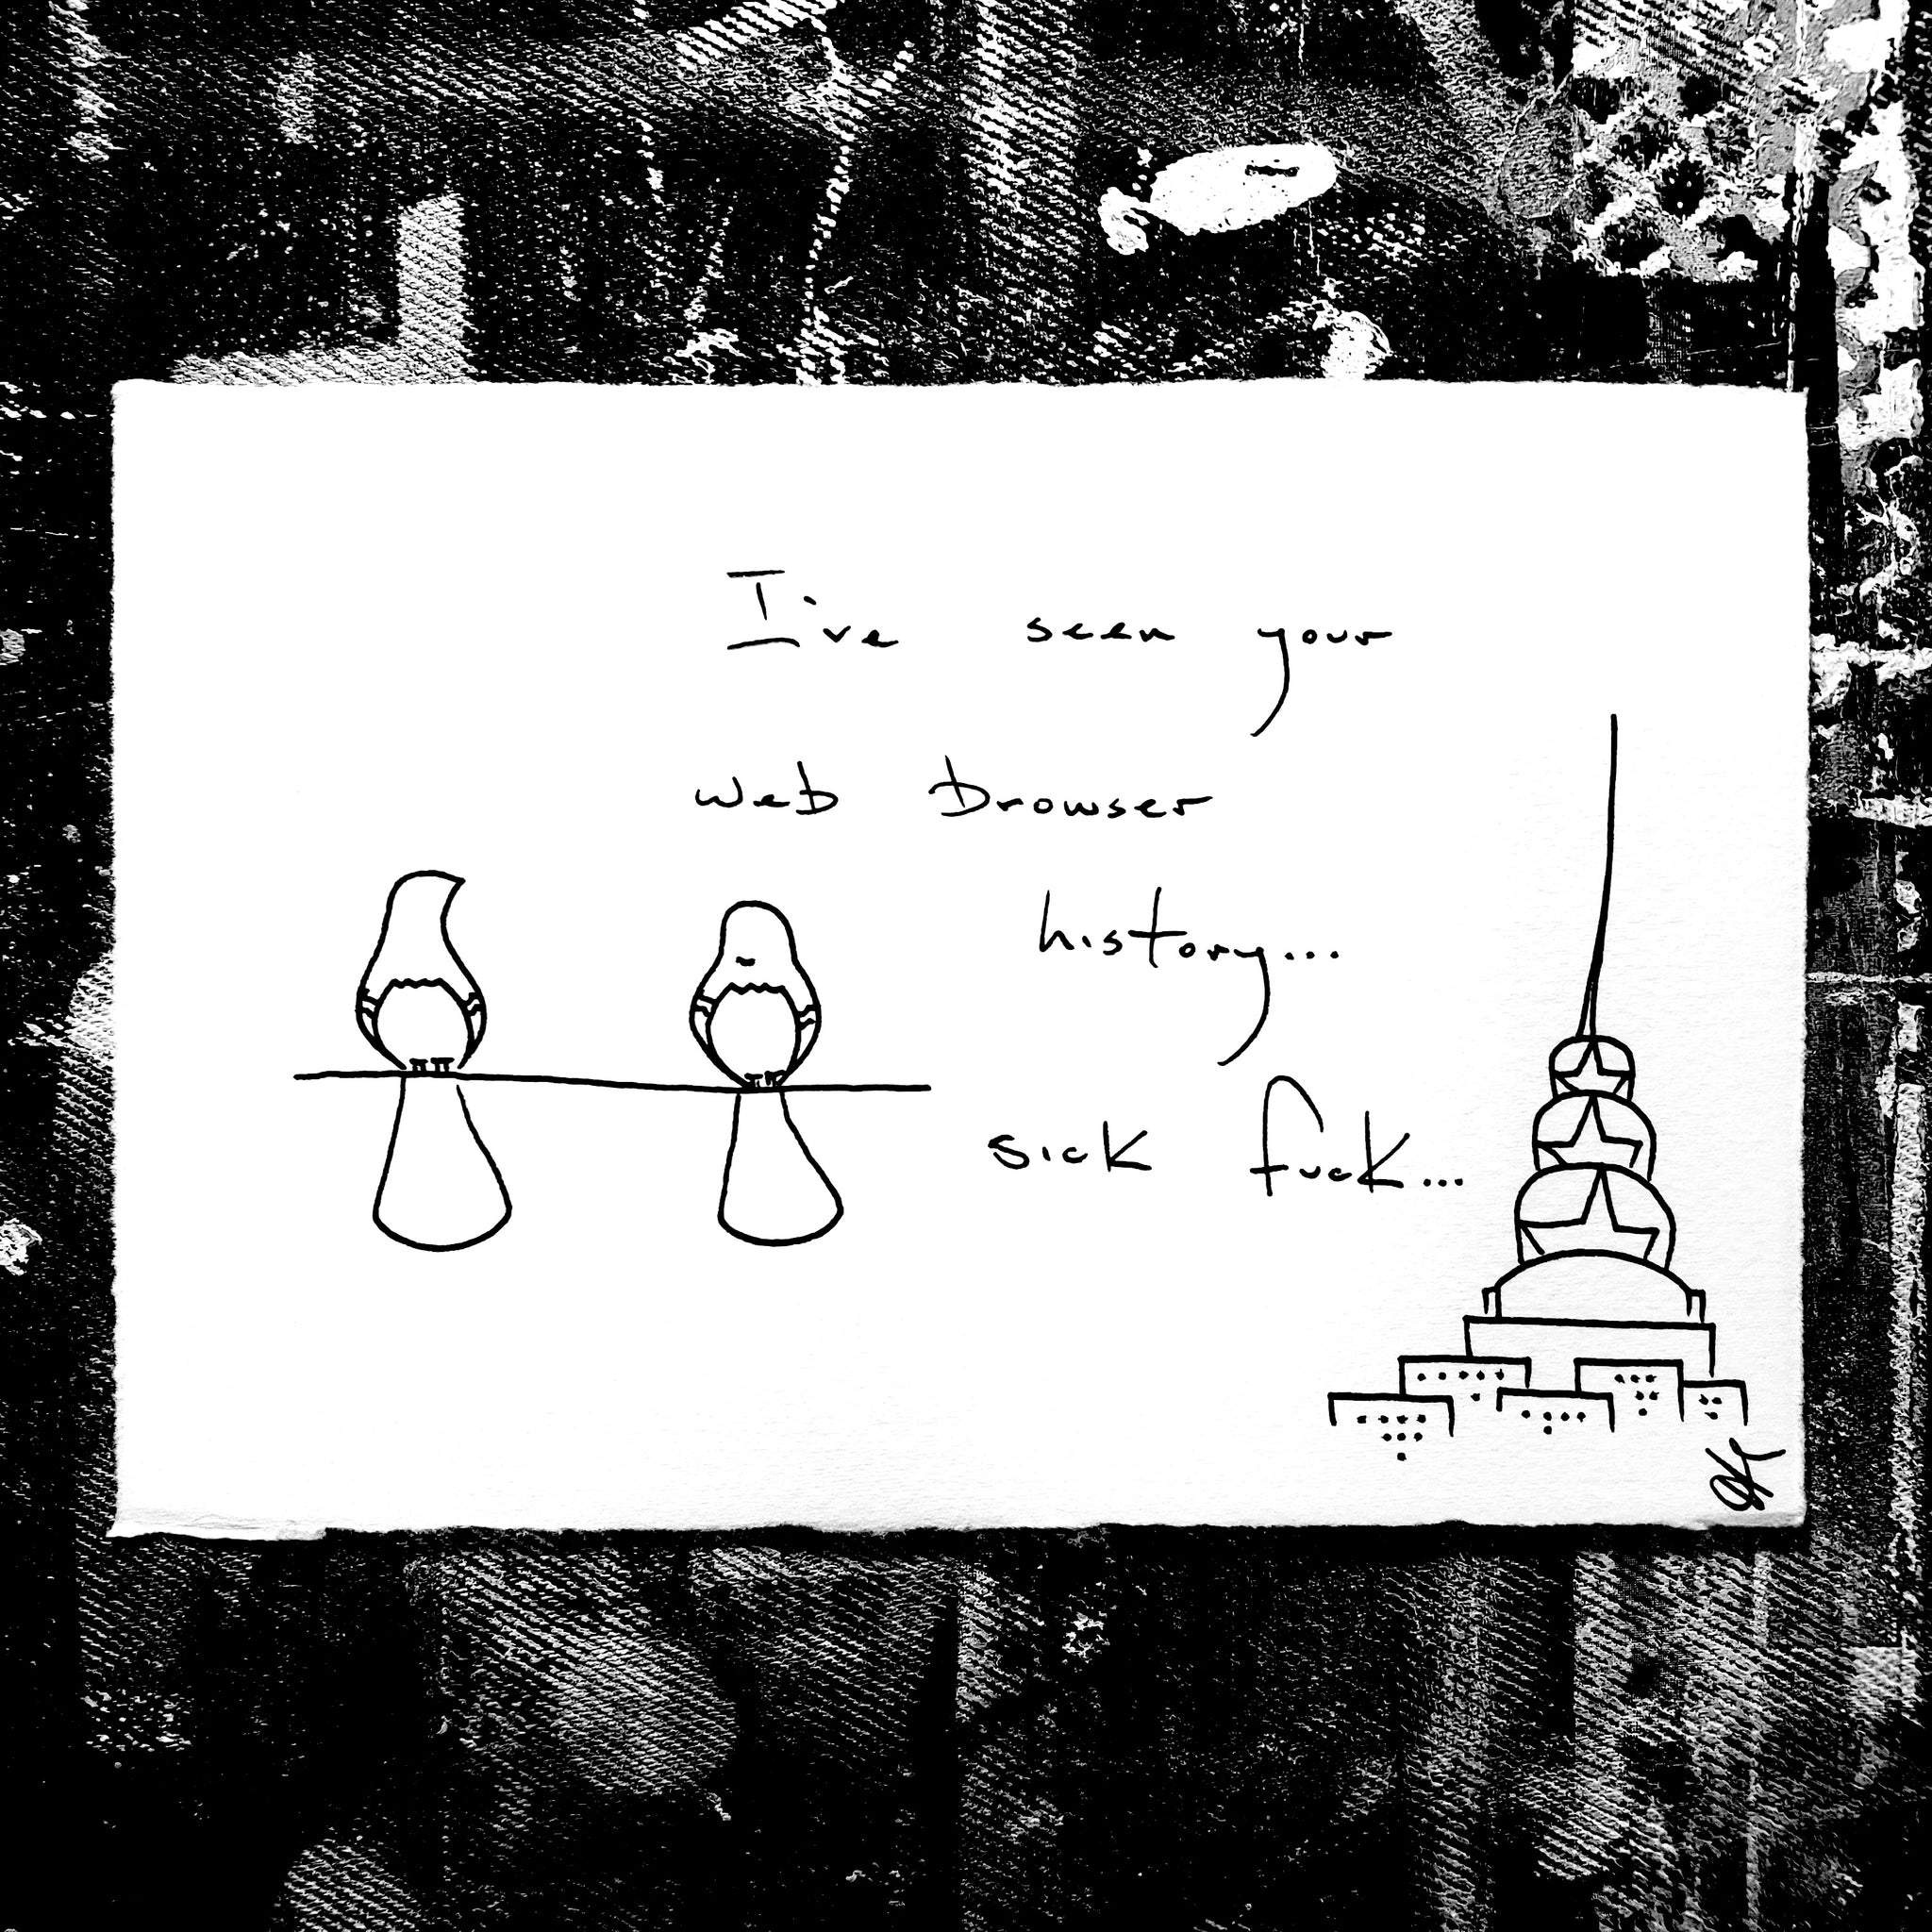 I've seen your
web browser
history...
sick fuck...